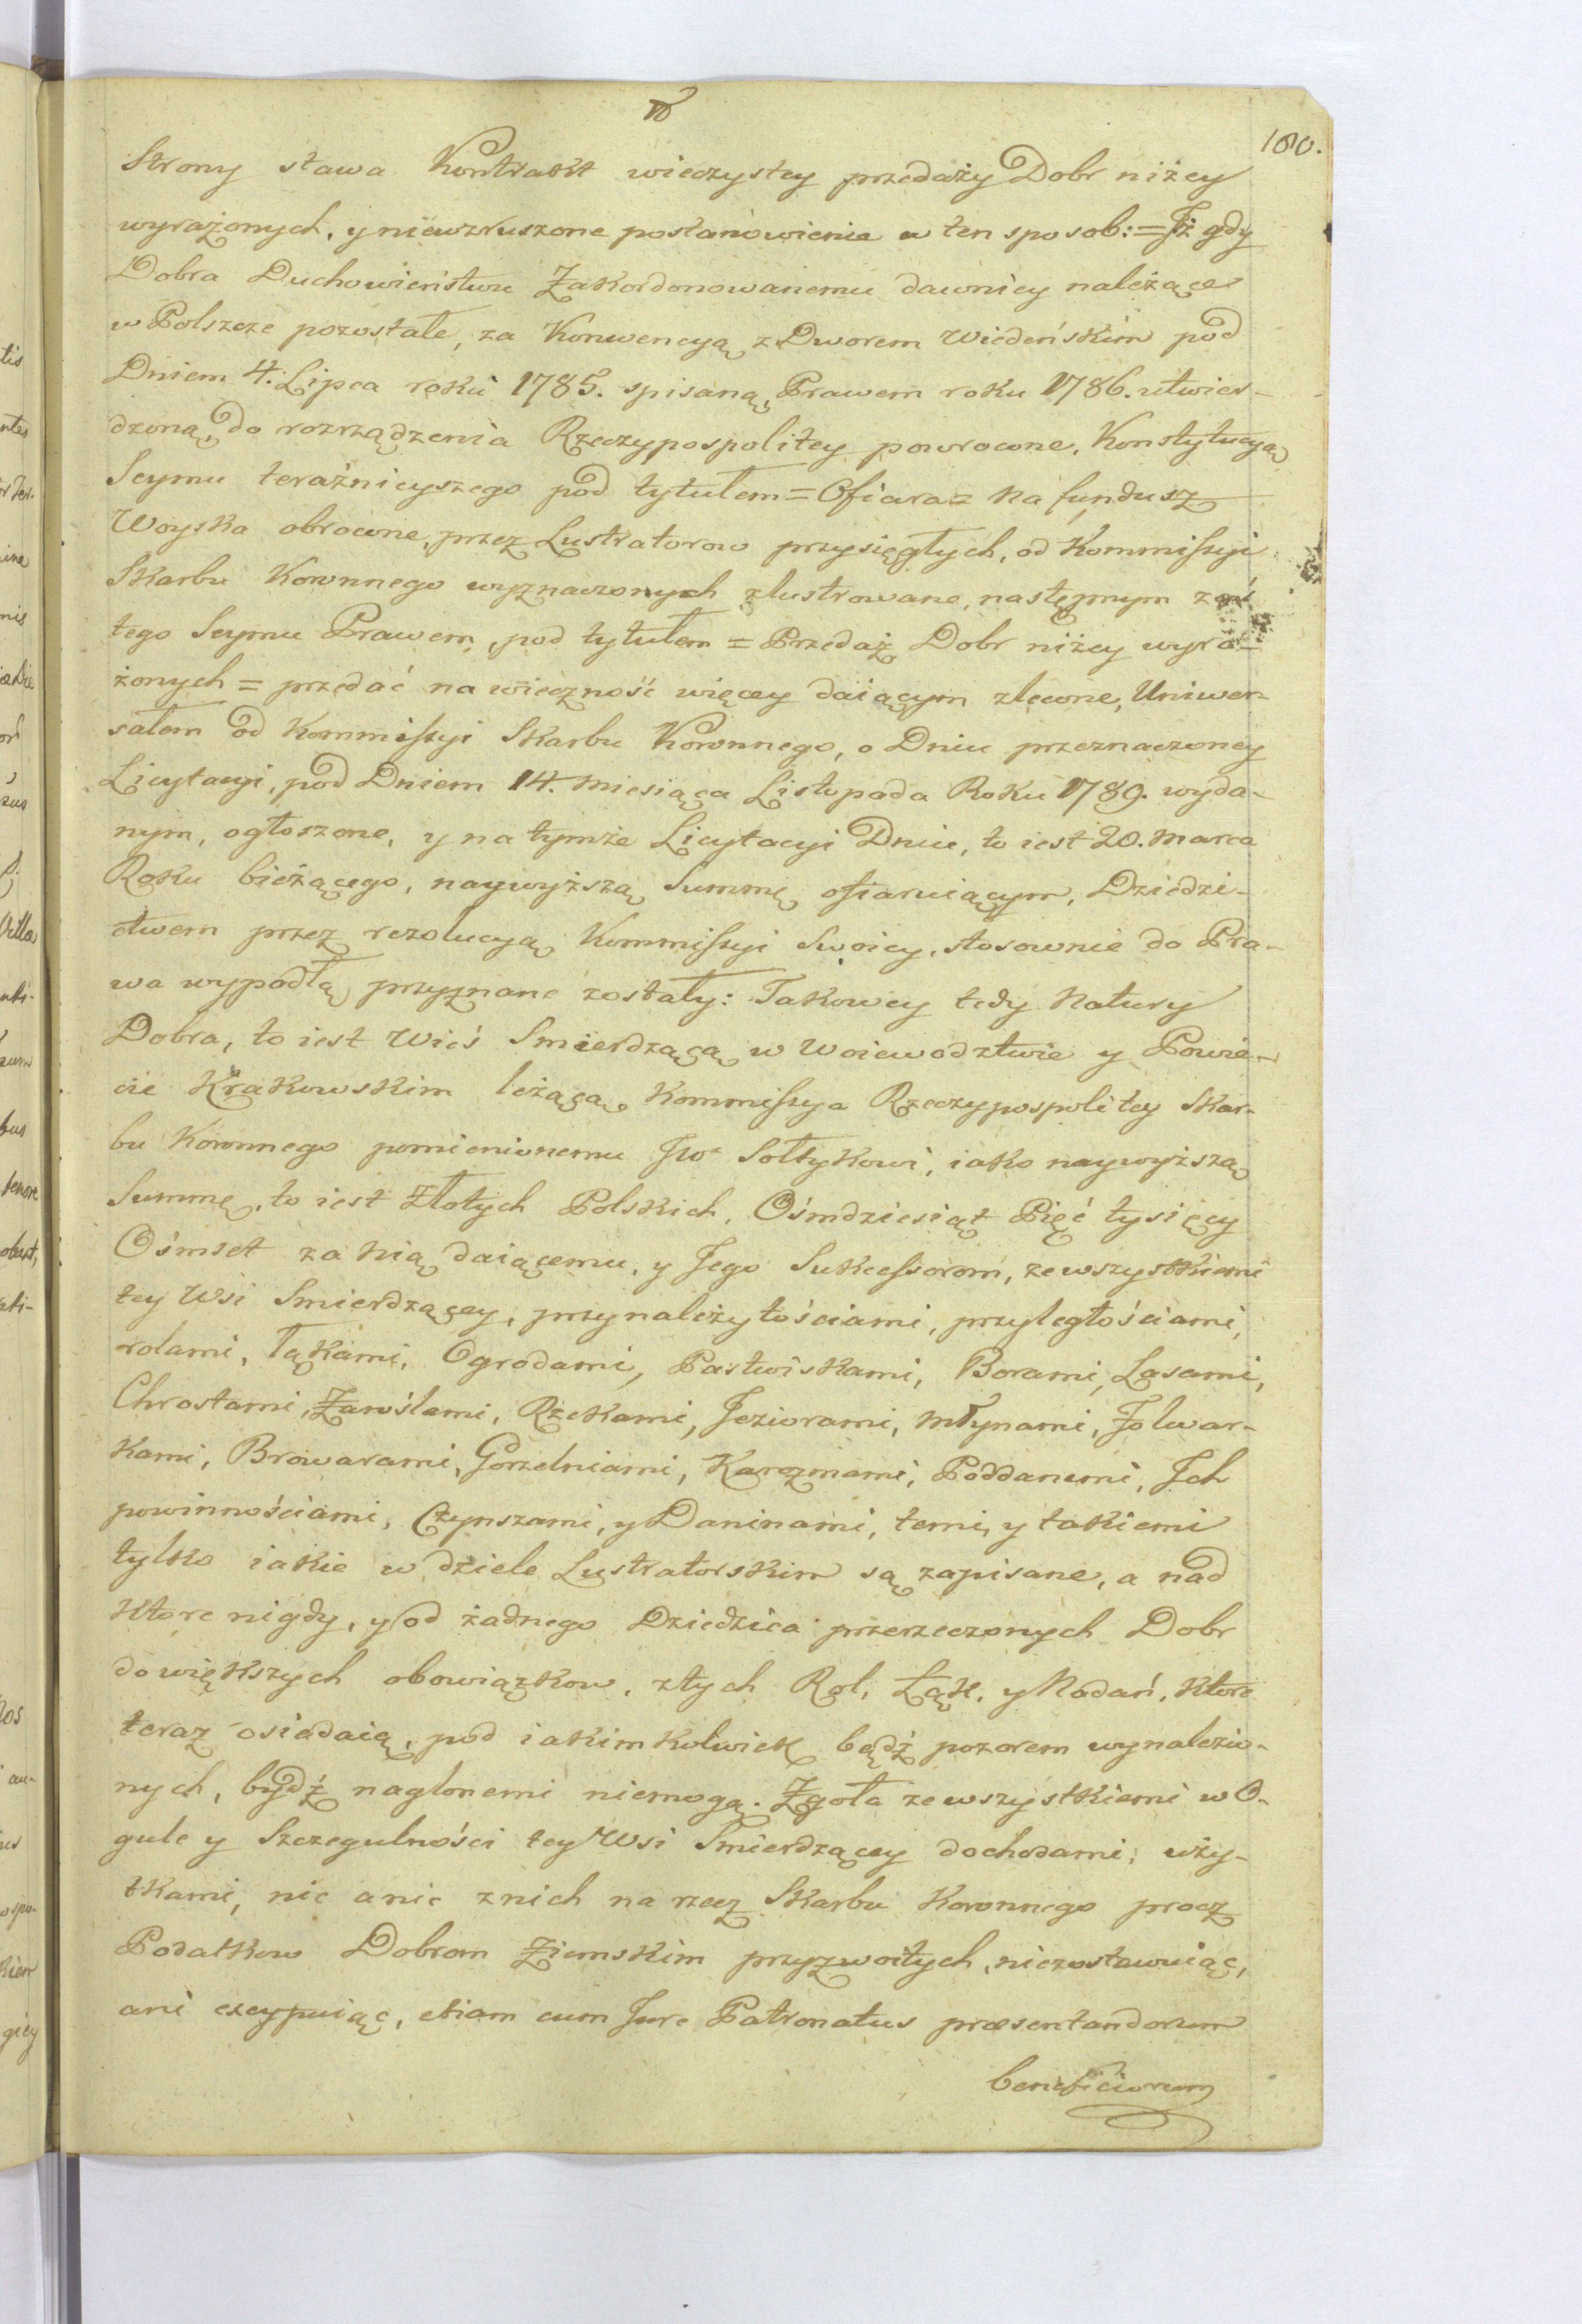 180.
Strony stawa Kontrakt wieczystey przedaży Dobr niżey
wyrażonych, y niewzruszone postanowienie w ten sposob: = Iż gdy
Dobra Duchowieństwu Zakordonowanemu dawniey należące
w Polszcze pozostałe, za Konwencyą z Dworem Wiedeńskim pod
Dniem 4. Lipca roku 1785. spisaną, Prawem roku 1786. utwier-
dzoną, do rozrządzenia Rzeczypospolitey powrocone, Konstytucyą
Seymu teraźnieyszego pod tytułem = Ofiara = na fundusz
Woyska obrocone, przez Lustratorow przysięgłych, od Kommissyi
Skarbu Koronnego wyznaczonych zlustrowane, następnym zaś
tego Seymu Prawem, pod tytułem = Przedaż Dobr niżey wyra-
żonych = przedać na wieczność więcey daiącym zlecone, Uniwer-
sałem od Kommissyi Skarbu Koronnego, o Dniu przeznaczoney
Licytacyi, pod Dniem 14. Miesiąca Listopada Roku 1789. wyda-
nym, ogłoszone, y na tymże Licytacyi Dniu, to iest 20. Marca
Roku bieżącego, naywyższą Summę ofiaruiącym, Dziedzi-
ctwem przez rezolucyą Kommissyi Swoiey, stosownie do Pra-
wa wypadłą przyznane zostały: Takowey tedy Natury
Dobra, to iest Wieś Smierdzącą w Woiewodztwie y Powie-
cie Krakowskim leżącą, Kommissya Rzeczypospolitey Skar-
bu Koronnego pomienionemu JWo Sołtykowi, iako naywyższą
Summę, to iest Złotych Polskich, Ośmdziesiąt Pięć tysięcy
Ośmset za nią daiącemu, y Jego Sukcessorom, ze wszystkiemi
tey Wsi Smierdzącey, przynależytościami, przyległościami,
rolami, łąkami, Ogrodami, Pastwiskami, Borami, Lasami,
Chrostami, Zaroślami, Rzekami, Jeziorami, Młynami, Folwar-
kami, Browarami, Gorzelniami, Karczmami, Poddanemi, Ich
powinnościami, Czynszami, y Daninami, temi, y takiemi
tylko iakie w dziele Lustratorskim są zapisane, a nad
ktore nigdy, y od żadnego Dziedzica przerzeczonych Dobr
do większych obowiązkow, z tych Rol, Łąk, y Nadań, ktore
teraz osiadaią, pod iakimkolwiek bądź pozorem wynalezio-
nych, bydź naglonemi niemogą. Zgoła ze wszystkiemi w O-
gule y Szczegulności tey Wsi Smierdzącey dochodami, uży-
tkami, nic a nic z nich na rzecz Skarbu Koronnego procz
Podatkow Dobrom Ziemskim przyzwoitych, niezostawuiąc,
ani excypuiąc, etiam cum Jure Patronatus præsentandorum
beneficiorum